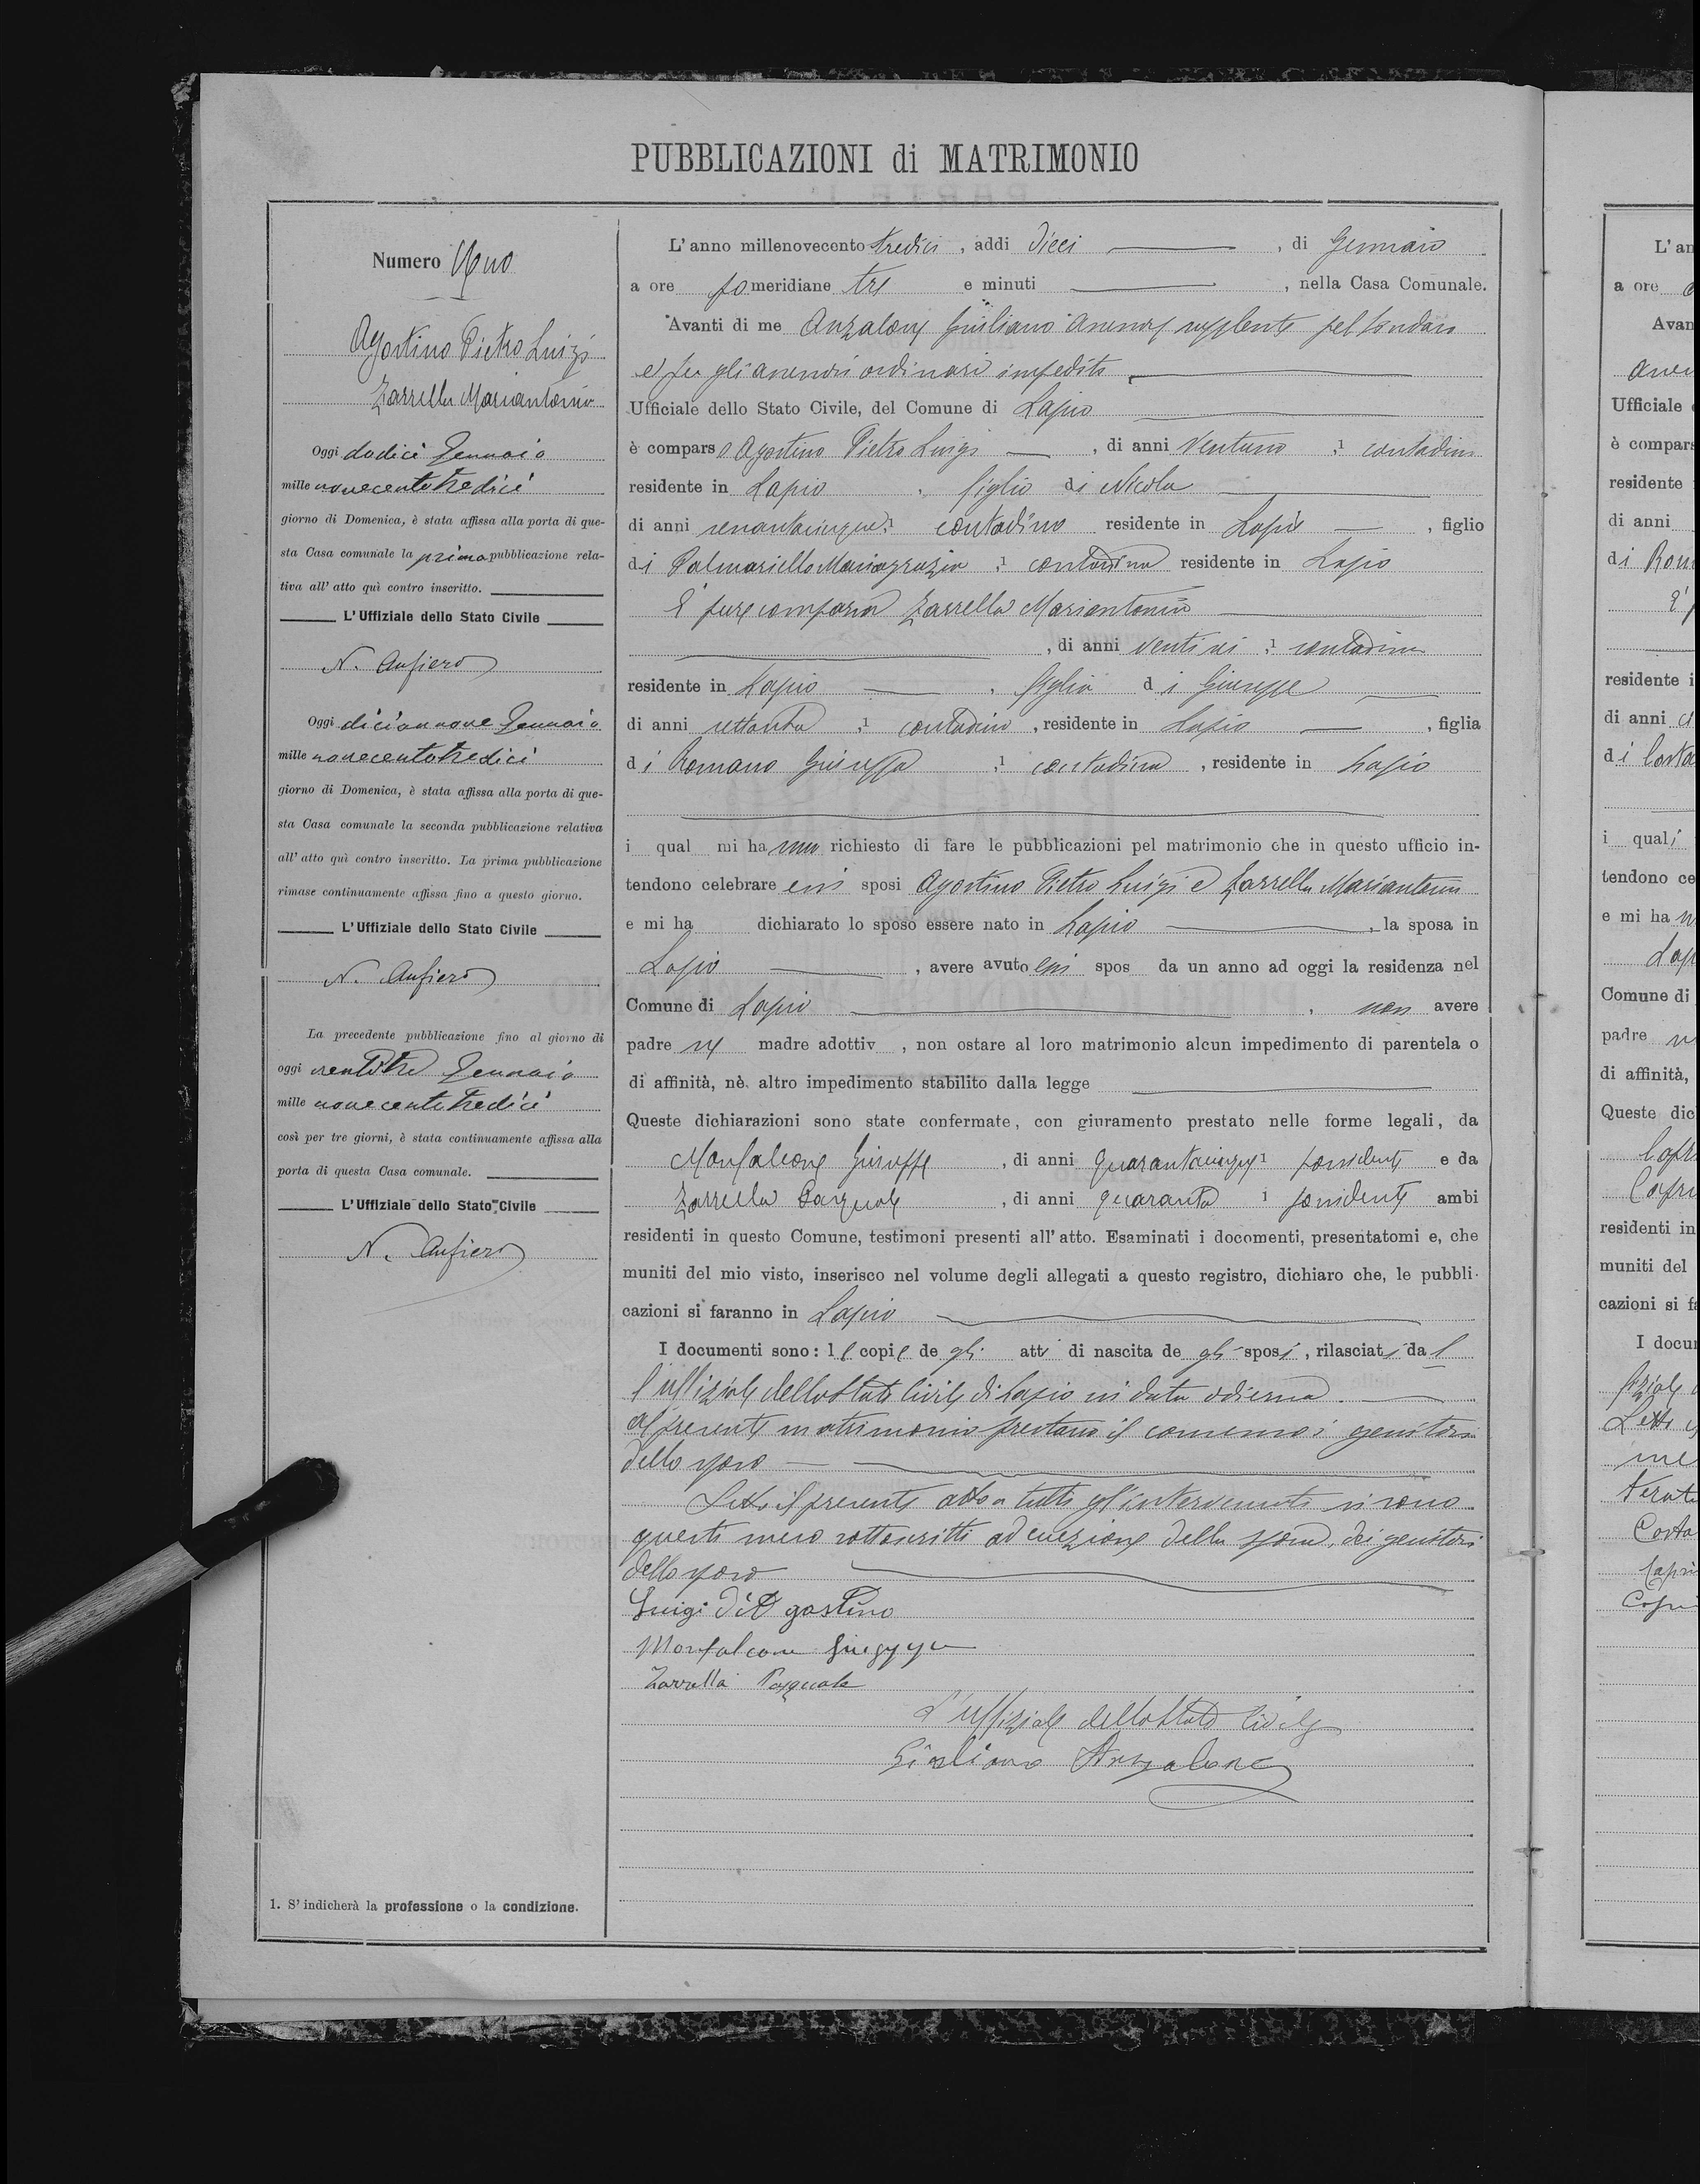 PUBBLICAZIONI di MATRIMONIO
Numero Uno
Agostino Pietro Luigi
Zarrella Mariantonia
Oggi dodici Gennaio
mille novecentotredici
giorno di Domenica, è stata affissa alla porta di que-
sta Casa comunale la prima pubblicazione rela-
tiva all' atto quì contro inscritto.
L'Uffiziale dello Stato Civile
N. Anfiero
Oggi diciannove Gennaio
mille novecentotredici
giorno di Domenica, è stata affissa alla porta di que-
sta Casa comunale la seconda pubblicazione relativa
all' atto quì contro inscritto. La prima pubblicazione
rimase continuamente affissa fino a questo giorno.
L'Uffiziale dello Stato Civile
N. Anfiero
La precedente pubblicazione fino al giorno di
oggi ventitre Gennaio
mille novecentotredici
così per tre giorni, è stata continuamente affissa alla
porta di questa Casa comunale.
L'Uffiziale dello Stato Civile
N. Anfiero
1. S' indicherà la professione o la condizione.
L' anno millenovecento tredici, addi dieci, di Gennaio
a ore pomeridiane tre e minuti , nella Casa Comunale.
Avanti di me Anzalone Giuliano assessore supplente pel Sindaco
e per gli assessori ordinari impediti
Ufficiale dello Stato Civile, del Comune di Lapio
è comparso Agostino Pietro Luigi, di anni ventuno 1 contadino
residente in Lapio, figlio di Nicola
di anni sessantacinque 1 contadino residente in Lapio, figlio
di Palmariello Mariagrazia 1 contadina residente in Lapio
È pure comparsa Zarrella Mariantonia
, di anni ventisei 1 contadina
residente in Lapio, figlia di Giuseppe
di anni settanta 1 contadino, residente in Lapio, figlia
di Romano Giuseppa 1 contadina, residente in Lapio
i qual mi hanno richiesto di fare le pubblicazioni pel matrimonio che in questo ufficio in-
tendono celebrare essi sposi Agostino Pietro Luigi e Zarrella Mariantonia
e mi ha dichiarato lo sposo essere nato in Lapio, la sposa in
Lapio, avere avuto essi spos da un anno ad oggi la residenza nel
Comune di Lapio, non avere
padre ne madre adottiv , non ostare al loro matrimonio alcun impedimento di parentela o
di affinità, nè altro impedimento stabilito dalla legge
Queste dichiarazioni sono state confermate, con giuramento prestato nelle forme legali, da
Monfalcone Giuseppe, di anni quarantacinque 1 possidente e da
Zarrella Pasquale, di anni quaranta 1 possidente ambi
residenti in questo Comune, testimoni presenti all' atto. Esaminati i docomenti, presentatomi e, che
muniti del mio visto, inserisco nel volume degli allegati a questo registro, dichiaro che, le pubbli-
cazioni si faranno in Lapio
I documenti sono: 1 le copie de gli atti di nascita de gli sposi, rilasciati dal
l'uffiziale dello Stato Civile di Lapio in data odierna.
Al presente matrimonio prestano il consenso i genitori
dello sposo
Letto il presente atto a tutti gl'intervenuti si sono
questi meco sottoscritti ad eccezione della sposa, dei genitori
dello sposo
Luigi Di Agostino
Monfalcone Giuseppe
Zarrella Pasquale
L'uffiziale dello Stato Civile
Giuliano Anzalone
L' an
a ore
Avan
Ufficiale
è compars
residente
di anni
di Rom
residente i
di anni
di Costa
i quali
tendono ce
e mi ha
Lapi
Comune di
padre
di affinità,
Queste dic
residenti in
muniti del
cazioni si fa
I docum